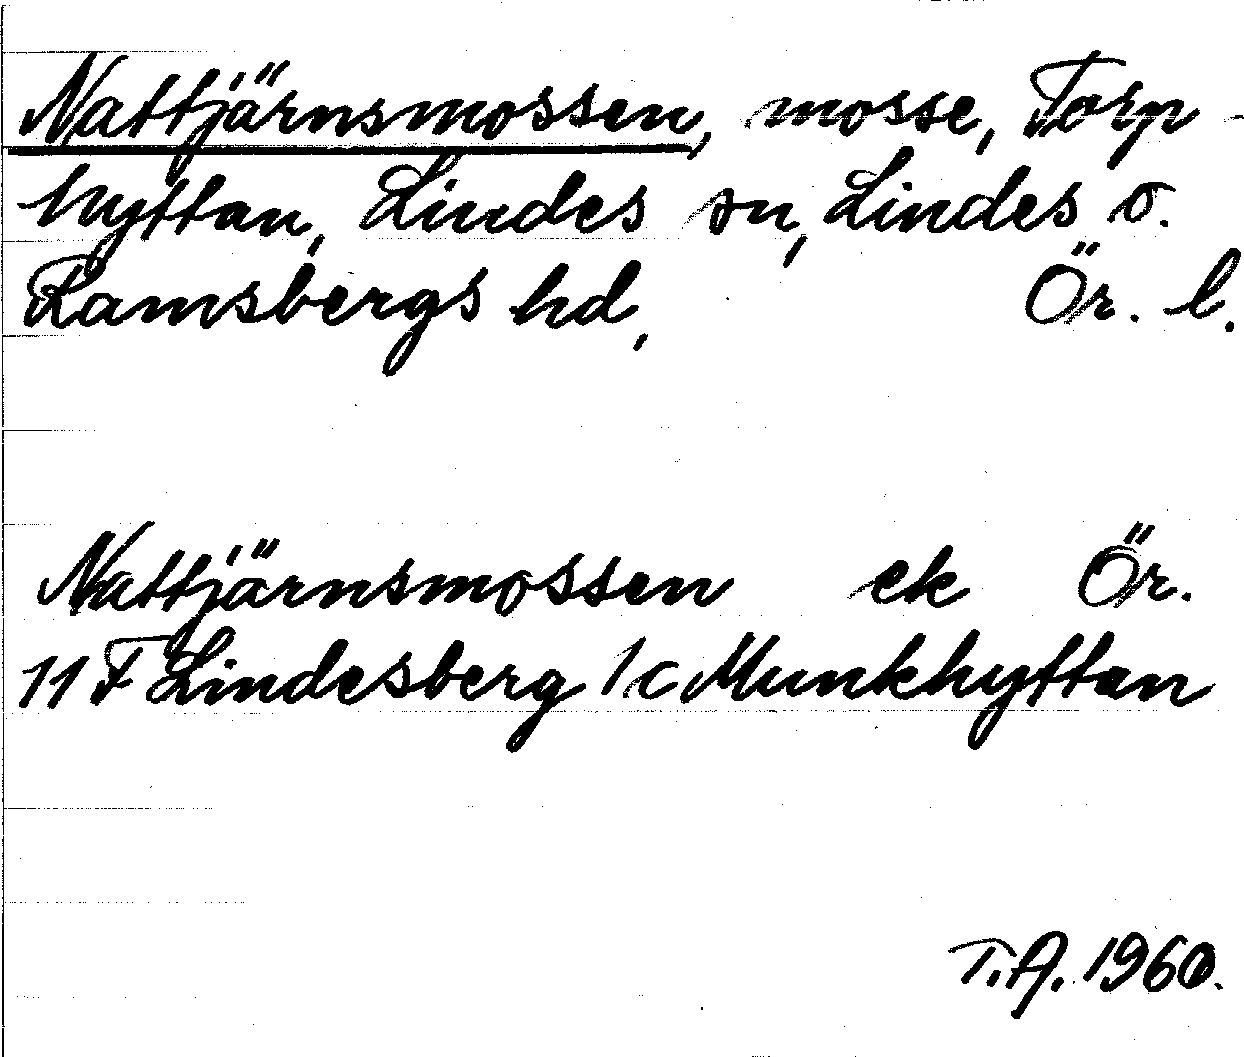 Nattjärnsmossen, mosse, Torp-
hyttan, Lindes sn, Lindes o.
Ramsbergs hd, Ör. l.
Nattjärnsmossen ek Ör.
11 F Lindesberg 1c Munkhyttan
T.A. 1960.